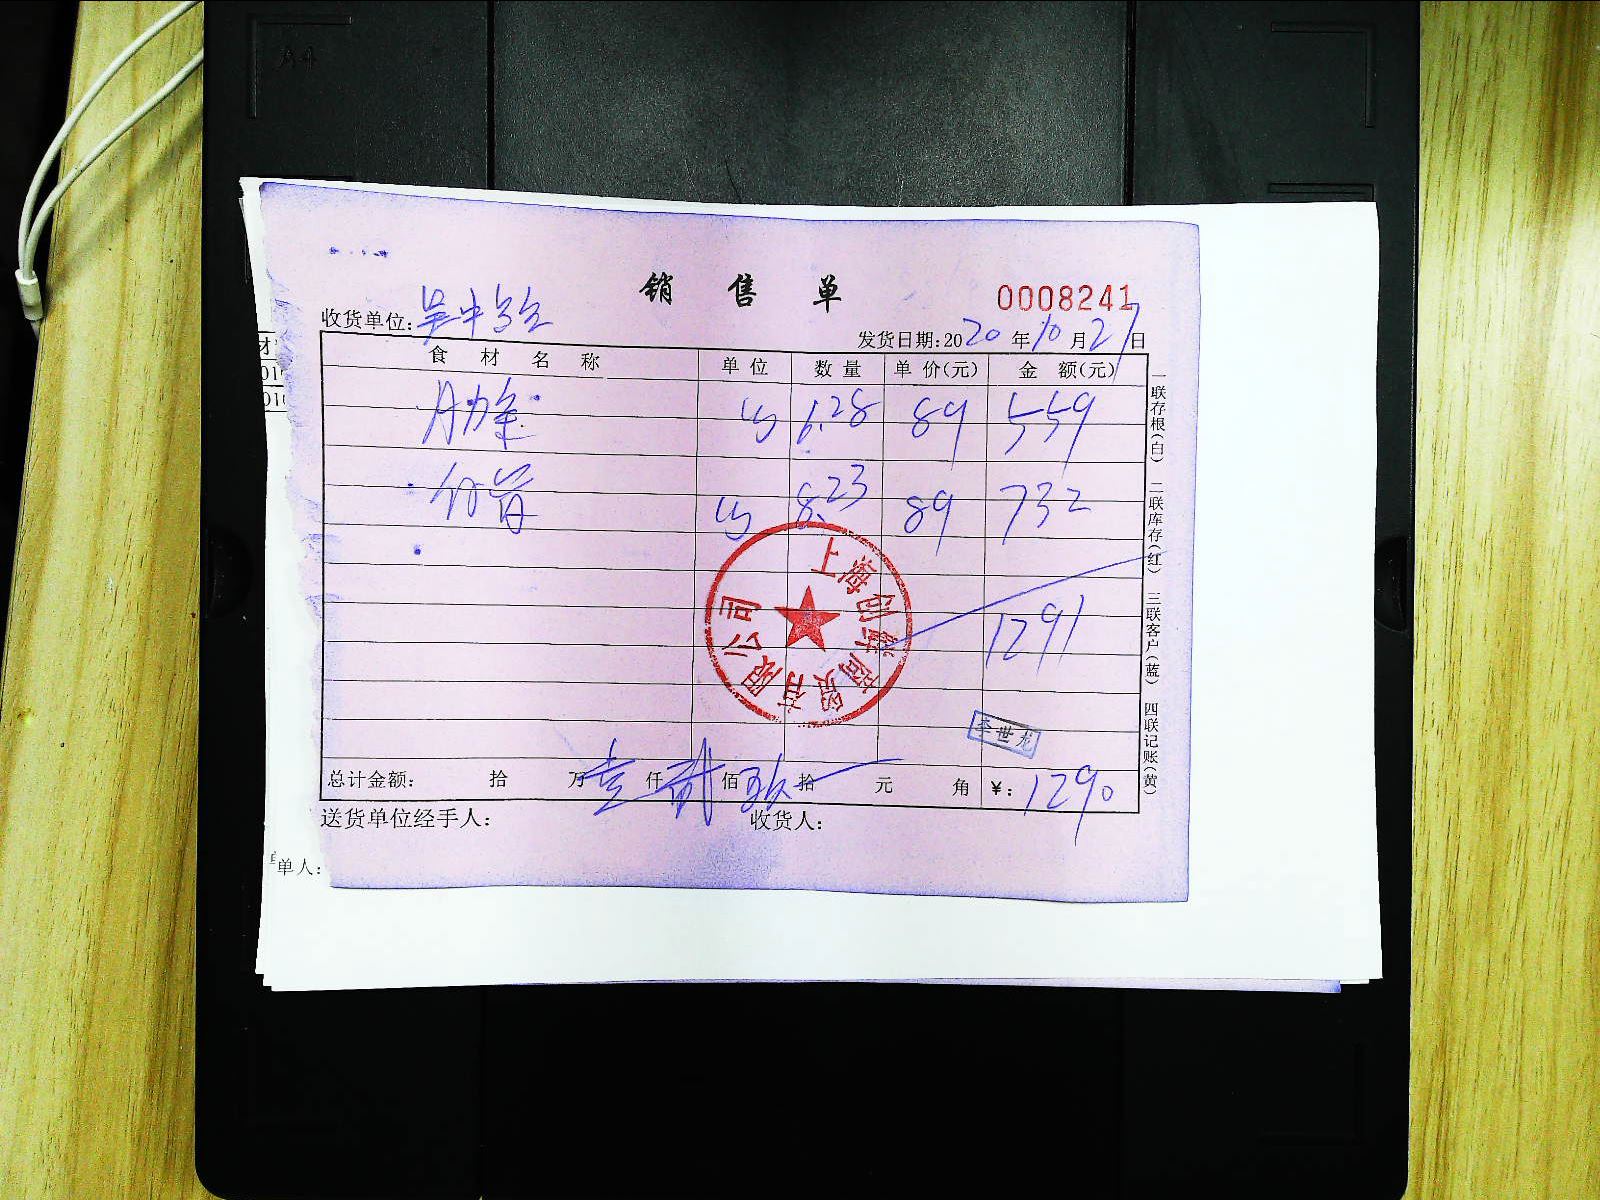 A4
销售单
0008241
收货单位:吴中
发货日期:2020年10月27日
食材名称 单位 数量 单价(元) 金额(元)
6.28 89 559
8.23 89 732
1291
上海创 贸有限公司
李世龙
总计金额: 拾 万壹仟贰佰玖拾 元 角 ¥:1290
送货单位经手人: 收货人:
一联存根(白) 二联库存(红) 三联客户(蓝) 四联记账(黄)
单人: